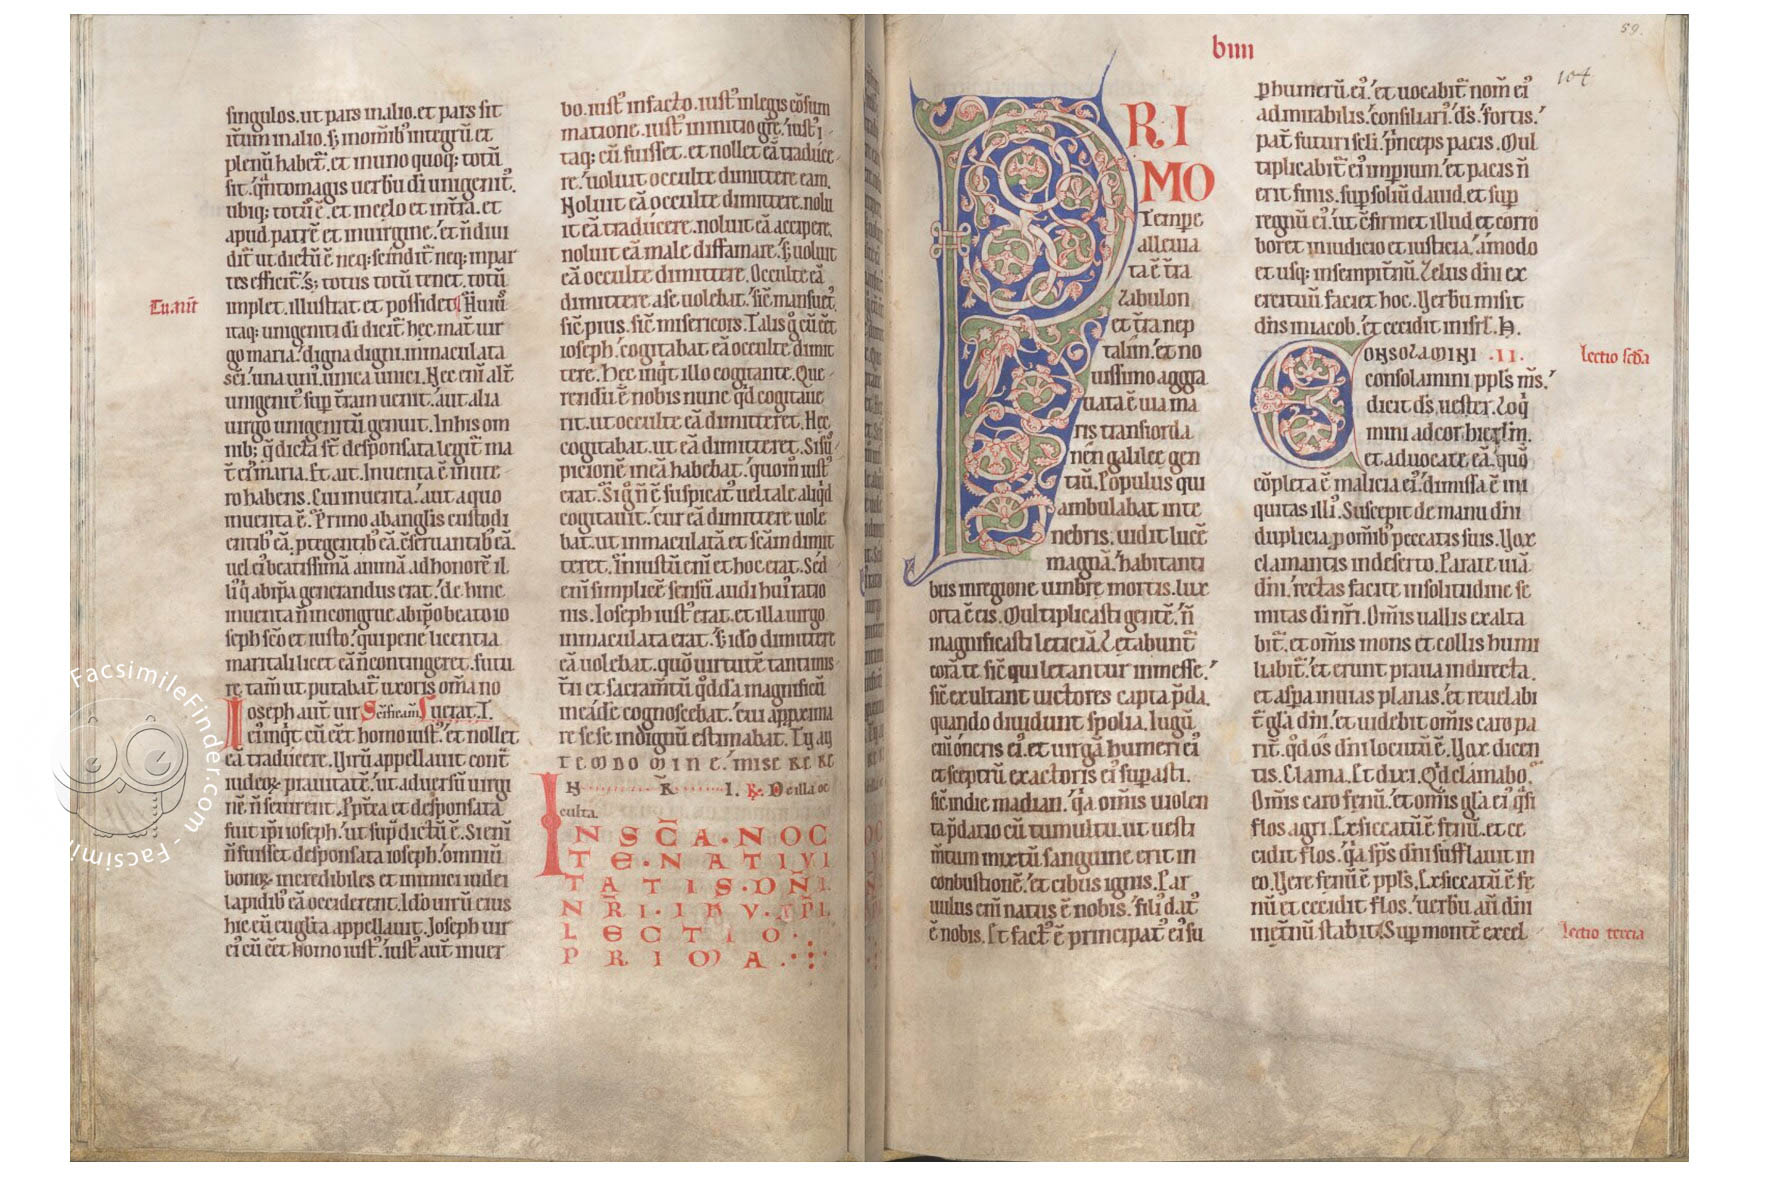 singulos. ut pars in alio. et pars sit
itm in alio. s; in omib; integrũ et
plenũ habet. et in uno quoq; totũ
sit. q̃ntomagis uerbũ di unigenit'.
ubiq; totũ ẽ. et in celo et in tr̃a. et
apud patrẽ et in uirgine. et ñ diui
dit ut dictũ ẽ neq; scindit neq; in par
tes efficit. s; totus totũ tenet. totũ
implet. illustrat et possidet. Huiu'
Tu aut
itaq; unigeniti di dicit hec mat uir
go maria. digna digni. inmaculata
sci. una uni'. unica unici. Nec eni alt
unigenit' sup tr̃am uenit. aut alia
uirgo unigenitũ genuit. In his om
nib; q̃ dicta st desponsata legit ma
t ei' maria. Et ait. Inuenta ẽ in ute
ro habens. Cui inuenta. aut a quo
inuenta ẽ. Primo ab anglis custodi
entib' eã. ptegentib' eã. c̃seruantib' eã.
uel ei' beatissimã animã ad honorẽ il
li' q̃ ab ip̃a generandus erat. de hinc
inuenta ñ incongrue ab ip̃o beato io
seph sc̃o et iusto. qui pene licentia
maritali licet eã ñ contingeret. futu
re tam ut putabat uxoris om̃a no
Ioseph aut uir uerat. I.
ei' inq̃t cũ eẽt homo iust'. et nollet
eã traducere. Virũ appellauit cont
iudeoꝝ prauitatẽ. ut aduersũ uirgi
nẽ ñ seuirent. Ppt̃ra et desponsata
fuit ip̃i ioseph. ut sup̃dictũ ẽ. Si eni
ñ fuisset desponsata ioseph. omniũ
bonoꝝ incredibiles et inimici iudei
lapidib' eã occiderent. Ido uirũ eius
hic eũ euglista appellauit. Ioseph uir
ei' cũ eẽt homo iust'. iust' aut in uer
bo. iust' in facto. iust' in legis cõsum
matione. iust' in initio gr̃e. iust' i
taq; cũ fuisset. et nollet eã traduce
re. uoluit occulte dimittere eam.
Noluit eã occulte dimittere. nolu
it eã traducere. noluit eã accipere.
noluit eã male diffamare. s; uoluit
eã occulte dimittere. Occulte eã
dimittere. a se uolebat. sic mansuet'.
sic pius. sic misericors. Talis g° cũ eẽt
ioseph. cogitabat eã occulte dimit
tere. Hec inq̃t illo cogitante. Que
rendũ ẽ nobis nunc q̃d cogitaue
rit. ut occulte eã dimitteret. Hec
cogitabat. ut eã dimitteret. Si su
picionẽ in eã habebat. quom iust'
erat. Si g° ñ ẽ suspicat' uel tale aliq̃d
cogitauit. cur eã dimittere uole
bat. ut inmaculatã et sc̃am dimit
teret. Iniustũ eni et hoc erat. Sed
eni simplicẽ sensũ. audi hui' ratio
nis. Ioseph iust' erat. et illa uirgo
inmaculata erat. s; ido dimittere
eã uolebat. quo uirtutẽ tanti mis
tii et sacramtũ q̃dda magnificũ
in eade cognoscebat. cui appxima
re sese indignũ estimabat. Tu au
TEM DOMINE. MISERERE
N R. I. ℟. O cilla oc
culta.
IN SC̃A · NOC
TE · NATIVI
TATIS · DÑI ·
NR̃I · IHV · XPI.
LECTIO ·
PRIMA .
biiii
59.
104
PRI
MO
tempe
alleuia
ta ẽ tr̃a
Zabulon
et tr̃a nep
talim. et no
uissimo aggra
uata ẽ uia ma
ris trans iorda
nẽn galileę gen
tiũ. Populus qui
ambulabat in te
nebris. uidit lucẽ
magnã. habitanti
bus in regione umbrę mortis. lux
orta ẽ eis. Multiplicasti gentẽ. ñ
magnificasti leticiã. Letabunt
corã te sic qui letantur in messe.
sic exultant uictores capta p̃da.
quando diuidunt spolia. Iugũ
eni oneris ei'. et uirgã humeri ei'
et sceptrũ exactoris ei' supasti.
sic in die madian. q̃a om̃is uiolen
ta p̃datio cũ tumultu. ut uesti
mtum mixtũ sanguine erit in
conbustionẽ. et cibus ignis. Par
uulus eni natus ẽ nobis. fili' dat'
ẽ nobis. Et fact' ẽ principat' ei' su
p humerũ ei'. et uocabit nom ei'
admirabilis. consiliari'. ds. fortis.
pat futuri scli. p̃nceps pacis. Mul
tiplicabit ei' impium. et pacis ñ
erit finis. sup soliũ dauid. et sup
regnũ ei'. ut c̃firmet illud et corro
boret in iudicio et iusticia. amodo
et usq; in sempitnũ. Zelus dñi ex
ercituũ faciet hoc. Verbũ misit
dñs in iacob. et cecidit in isrl. H.
CONSOLAMINI · II ·
Lectio scda
consolamini ppls ms.
dicit ds uester. Loq̃
mini ad cor hierlm.
et aduocate eã. quo
cõpleta ẽ malicia ei'. dimissa ẽ ini
quitas illi'. Suscepit de manu dñi
duplicia p omib' peccatis suis. Vox
clamantis in deserto. Parate uiã
dñi. rectas facite in solitudine se
mitas di nr̃i. Om̃is uallis exalta
bit. et om̃is mons et collis humi
liabit. et erunt praua in directa.
et asp̃a in uias planas. et reuelabi
t gl̃a dñi. et uidebit om̃is caro pa
rit. q̃d os dñi locutũ ẽ. Vox dicen
tis. Clama. Et dixi. Q̃d clamabo.
Om̃is caro fenũ. et om̃is gl̃a ei' q̃si
flos agri. Exsiccatũ ẽ fenũ. et ce
cidit flos. q̃a sp̃s dñi sufflauit in
eo. Vere fenũ ẽ ppls. Exsiccatũ ẽ fe
nũ et cecidit flos. uerbũ au dñi
in etnũ stabit. Sup montẽ excel
Lectio tercia
FacsimileFinder.com - Facsimi